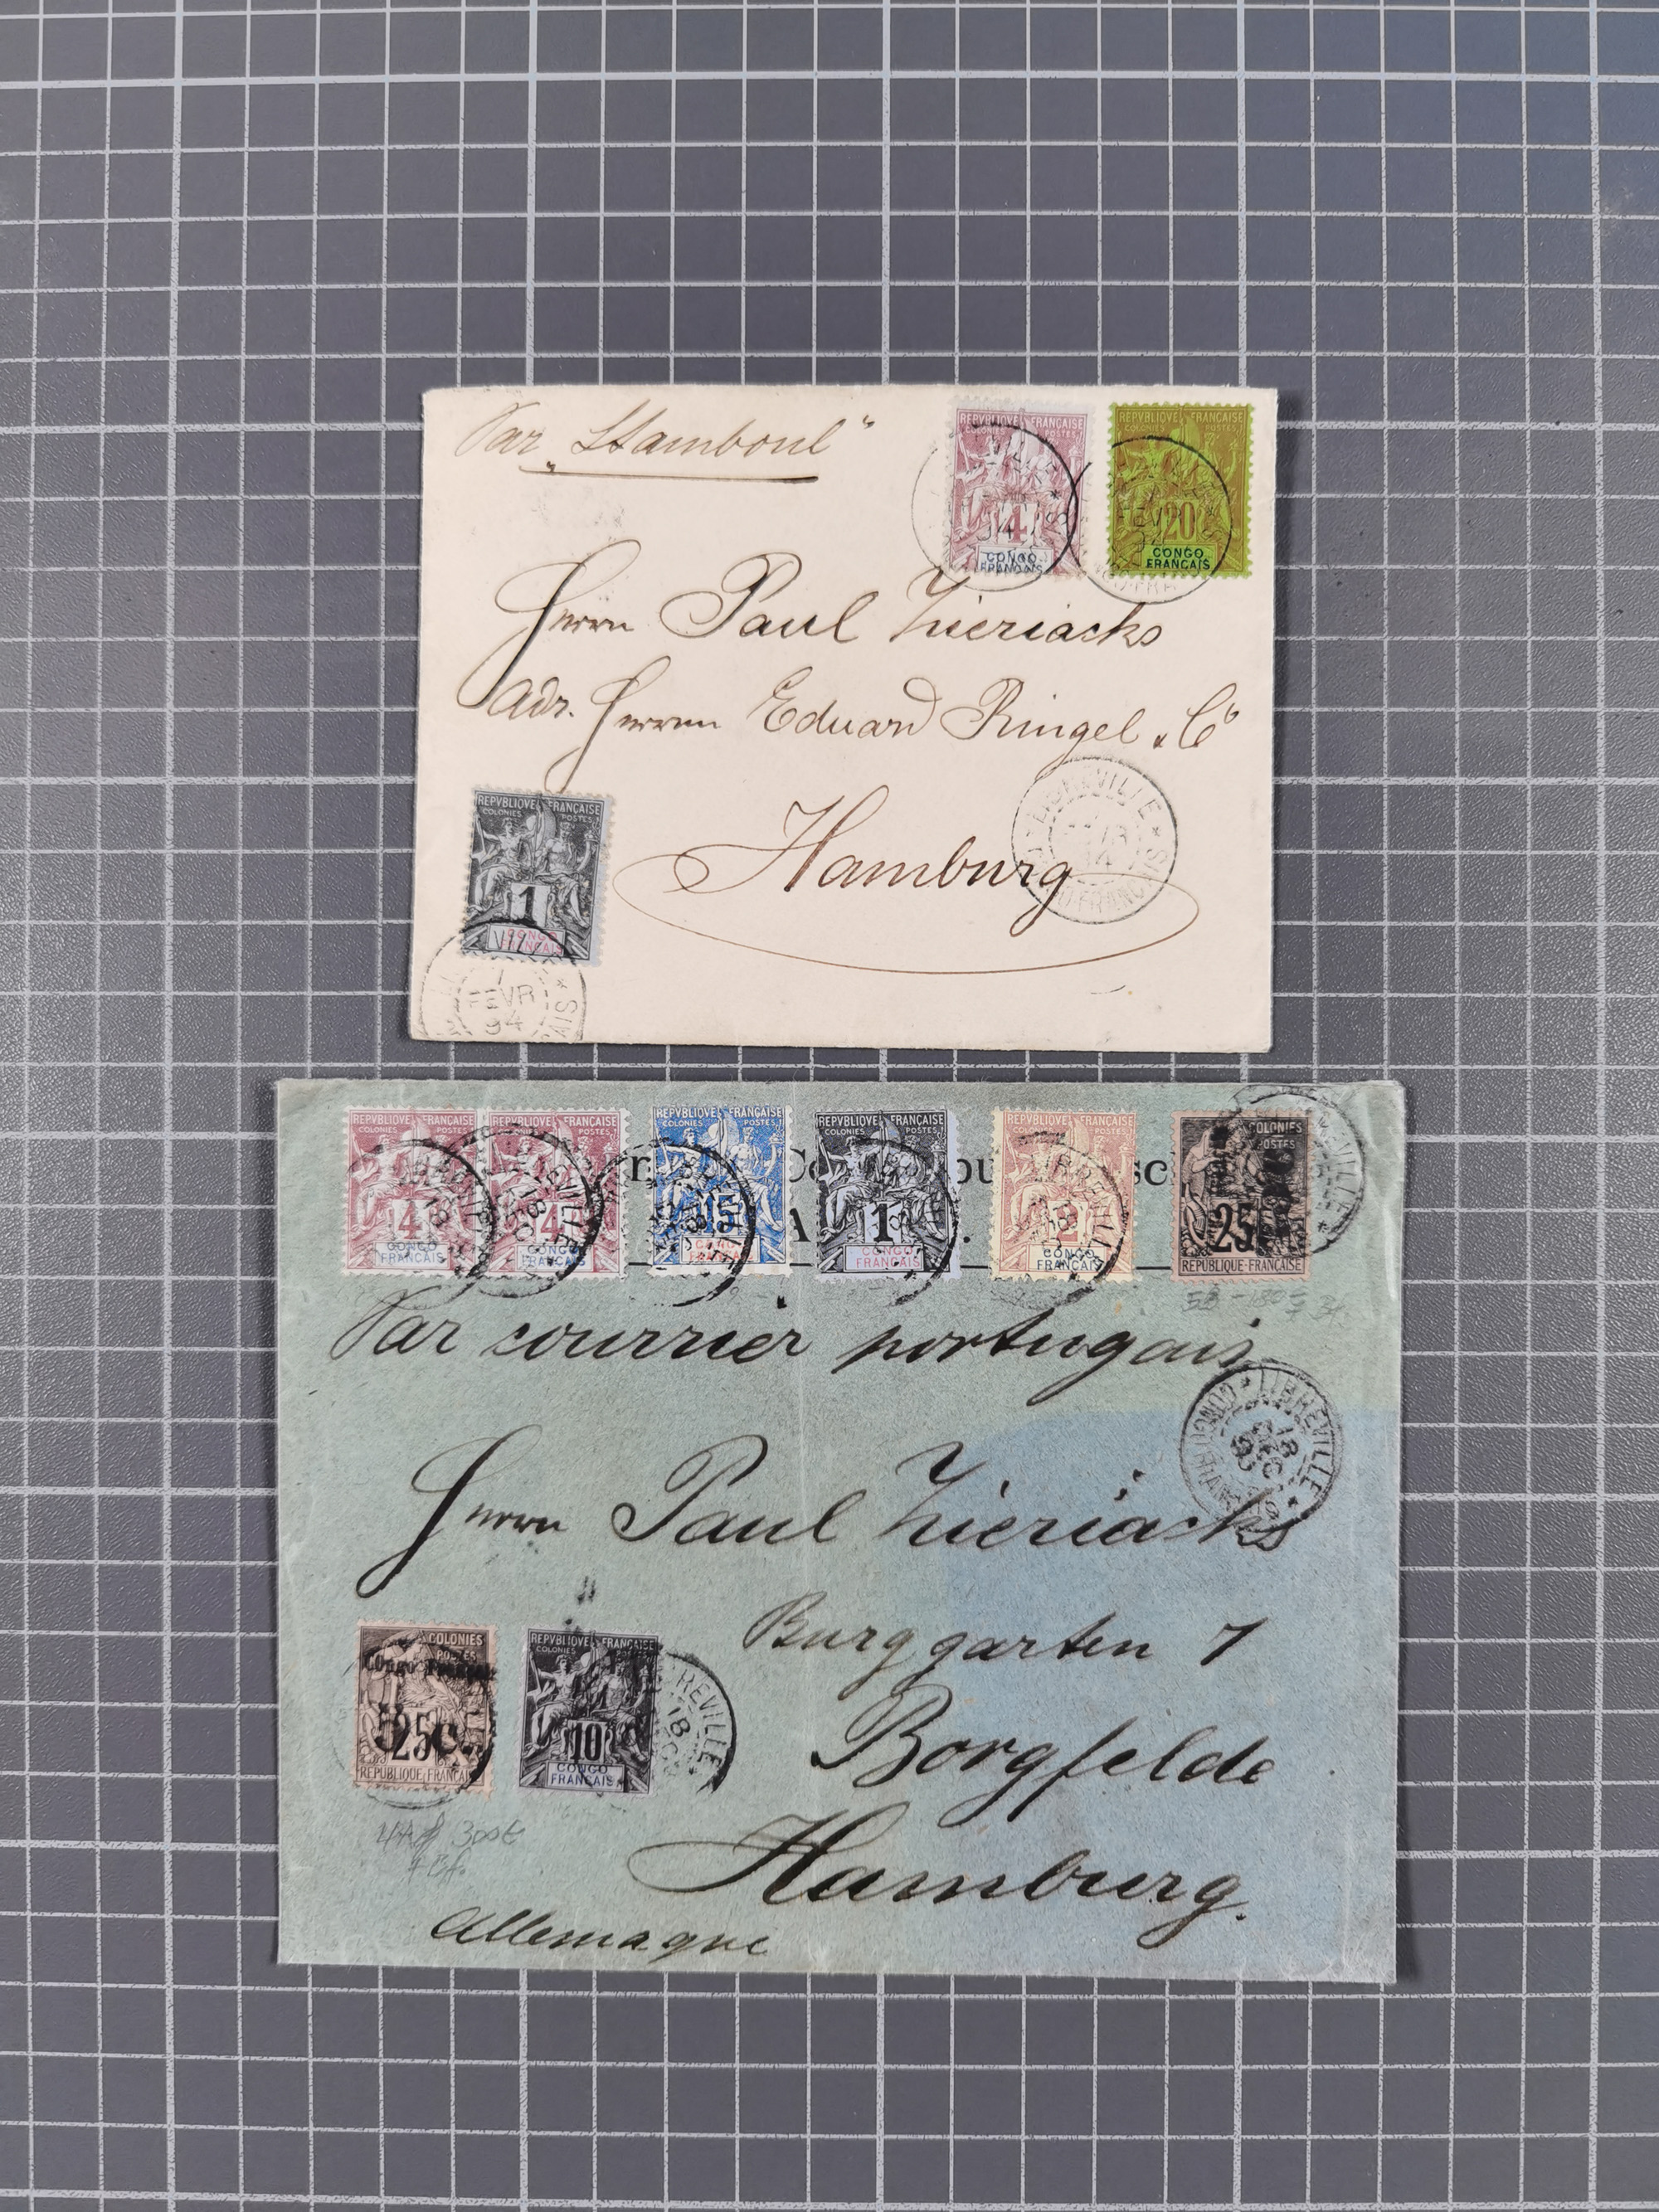 Par "Stamboul"
REPVBLIQVE FRANÇAISE
COLONIES POSTES
4
CONGO
FRANÇAIS
REPVBLIQVE FRANÇAISE
COLONIES POSTES
FEVR
20
CONGO
FRANÇAIS
Herrn Paul Zieriacks
Adr. Herren Eduard Ringel & Co
Hamburg
LIBREVILLE
FRANÇAIS
REPVBLIQVE FRANÇAISE
COLONIES POSTES
1
CONGO
FRANÇAIS
1
FEVR
94
REPVBLIQVE FRANÇAISE
COLONIES POSTES
4
CONGO
FRANÇAIS
REPVBLIQVE FRANÇAISE
COLONIES POSTES
4
CONGO
FRANÇAIS
REPVBLIQVE FRANÇAISE
COLONIES POSTES
15
CONGO
FRANÇAIS
REPVBLIQVE FRANÇAISE
COLONIES POSTES
1
CONGO
FRANÇAIS
REPVBLIQVE FRANÇAISE
COLONIES POSTES
2
CONGO
FRANÇAIS
COLONIES
POSTES
25
REPUBLIQUE FRANÇAISE
Par courrier portugais
LIBREVILLE
18
DEC
CONGO FRANÇAIS
Herrn Paul Zieriacks
Burggarten 7
Borgfelde
Hamburg.
Allemagne
COLONIES
POSTES
Congo Français
5 25 c.
REPUBLIQUE FRANÇAISE
REPVBLIQVE FRANÇAISE
COLONIES POSTES
10
CONGO
FRANÇAIS
REVILLE
18
300€